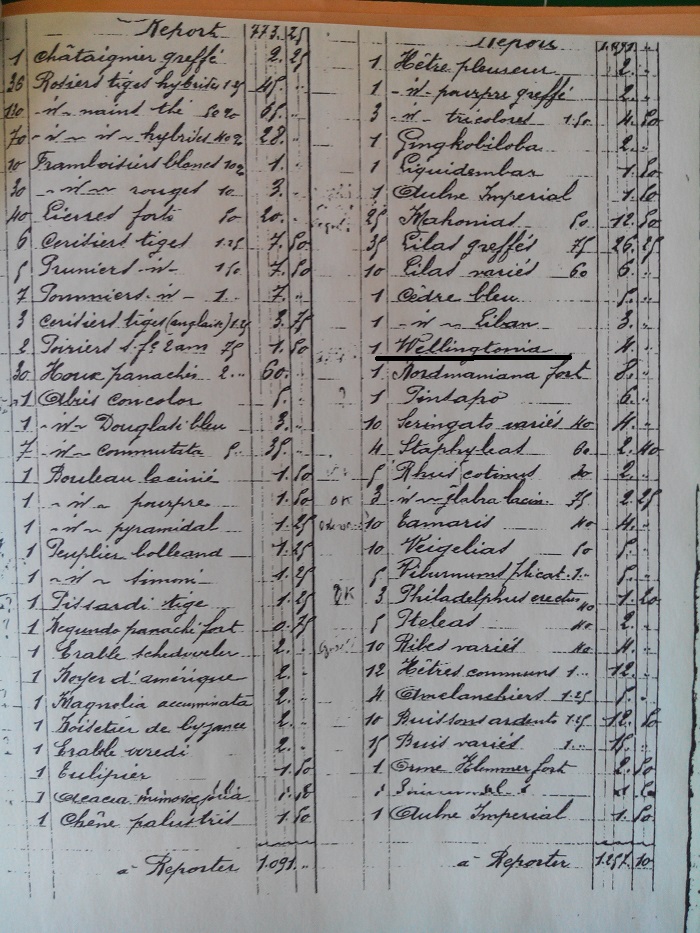 Report 773.25
1 châtaignier greffé 2.25
36 Rosiers tiges hybrides 1.25 45.
130 -id- nains thé 50% 65.
70 -id- -id- hybrides 40% 28.
10 Framboisiers blancs 10% 1.
30 -id- rouges 10 3.
40 Lierres forts 50 20.
6 Cerisiers tiges 1.25 7.50
5 Pruniers -id- 1.50 7.50
7 Pommiers -id- 1.. 7.
3 cerisiers tiges (anglais) 1.25 3.75
2 Poiriers 2 am 75 1.50
30 Houx panachés 2... 60.
1 Abies concolor 5.
1 -id- Douglasi bleu 3.
7 -id- commutata 5.. 35.
1 Bouleau lacinié 1.50
1 -id- pourpre 1.50
1 -id- pyramidal 1.25
1 Peuplier bolleand 1.25
1 -id- simoni 1.25
1 Pissardi tige 1.25
1 Negundo panaché fort 0.75
1 Erable schedweler 2.
1 Noyer d'amérique 2.
1 Magnolia accuminata 2.
1 Noisetier de byzance 2.
1 Erable weedi 2.
1 Tulipier 1.50
1 Acacia
1 Chêne palustris 1.50
à Reporter 1.091.
Report 1.091.
1 Hêtre pleureur 2.
1 -id- pourpre greffé 2.
3 -id- tricolores 1.50 4.50
1 Gingkobiloba 2.
1 Liquidembar 1.50
1 Aulne Imperial 1.50
25 Mahonias 50 12.50
35 Lilas greffés 75 26.25
10 Lilas variés 60 6.
1 Cèdre bleu 5.
1 -id- Liban 3.
1 Wellingtonia 4.
1 Nordmaniana fort 8.
1 Pinsapo 6.
10 Seringats variés 40 4.
4 Staphyleas 60 2.40
5 Rhus cotinus 2.
OK 3 -id- glabra lacin. 75 2.25
10 Tamaris 40 4.
10 Veigelias 50 5.
5 Viburnums plicat. 1.. 5.
OK 3 Philadelphus erectus 40 1.20
5 Pteleas 40 2.
10 Ribes variés 40 4.
12 Hêtres communs 1... 12.
4 Amelanchiers 1.25 5.
10 Buissons ardents 1.25 12.50
15 Buis variés 1... 15.
1 Orme fort 2.50
1 Aulne Imperial 1.50
à Reporter 1.257.10